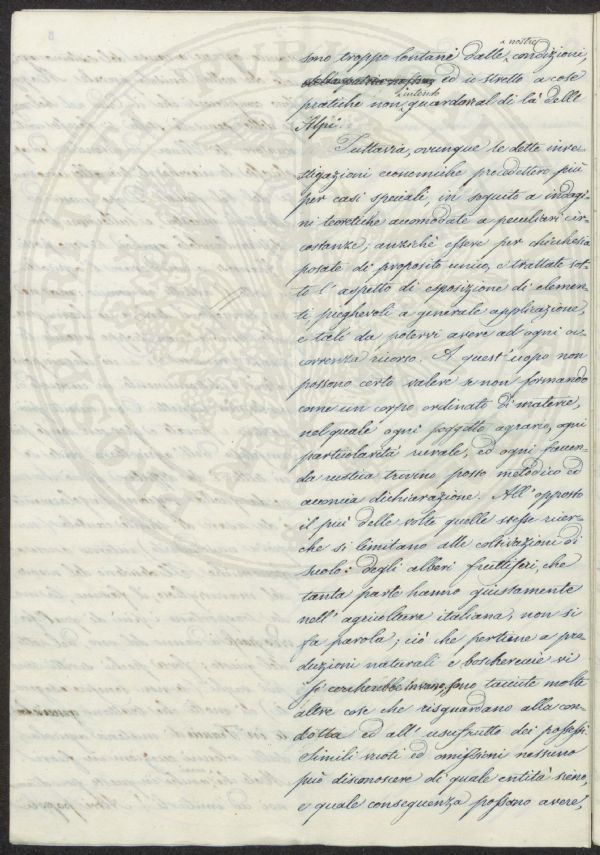 a nostre
sono troppo lontane dalle condizioni,
ed io stretto a cose
intendo
pratiche non guardar al di là delle
Alpi.
Tuttavia, ovunque le dette inve-
stigazioni economiche procedettero più
per casi speciali, in seguito a indagi-
ni teoretiche accomodate a peculiari cir-
costanze; anzichè essere per chicchessia
posate di proposito unico, e trattate sot-
to l'aspetto di esposizione di elemen-
ti pieghevoli a generale applicazione,
e tali da potervi avere ad ogni oc-
correnza ricorso. A quest'uopo non
possono certo valere se non formando
come un corpo ordinato di materie,
nel quale ogni soggetto agrario, ogni
particolarità rurale, ed ogni faccen-
da rustica trovino posto metodico ed
acconcia dichiarazione. All'opposto
il più delle volte quelle stesse ricer-
che si limitano alle coltivazioni di
suolo: degli alberi fruttiferi, che
tanta parte hanno giustamente
nell'agricoltura italiana, non si
fa parola; ciò che pertiene a pro-
duzioni naturali e boschereccie vi
si cercherebbe invano, sono taciute molte
altre cose che risguardano alla con-
dotta ed all'usufrutto dei possessi.
Simili vuoti ed omissioni nessuno
può disconoscere di quale entità sieno,
e quale conseguenza possano avere,